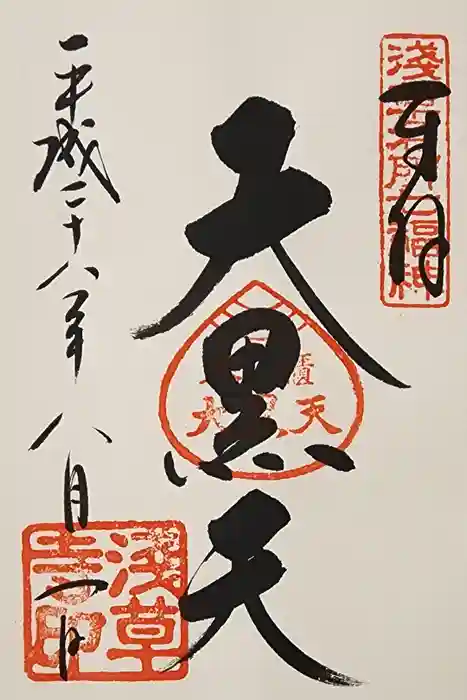 奉拝
淺草名所七福神
大黒天
平成二十八年八月一日
浅草寺印